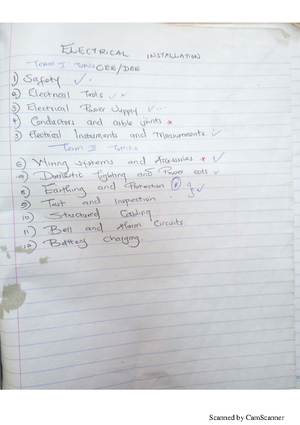 ELECTRICAL INSTALLATION
Term I Topics CEE/DEE
1) Safety ✓
2) Electrical Tools ✓
3) Electrical Power Supply ✓
4 Conductors and Cable joints *
5 Electrical Instruments and Measurements ✓
Term II Topics
6) Wiring Systems and Accessories * ✓
7) Domestic lighting and Power ccts ✓
8) Earthing and Protection ✓
9) Test and Inspection
10) Structured Cabling
11) Bell and Alarm Circuits
12) Battery Charging
Scanned by CamScanner